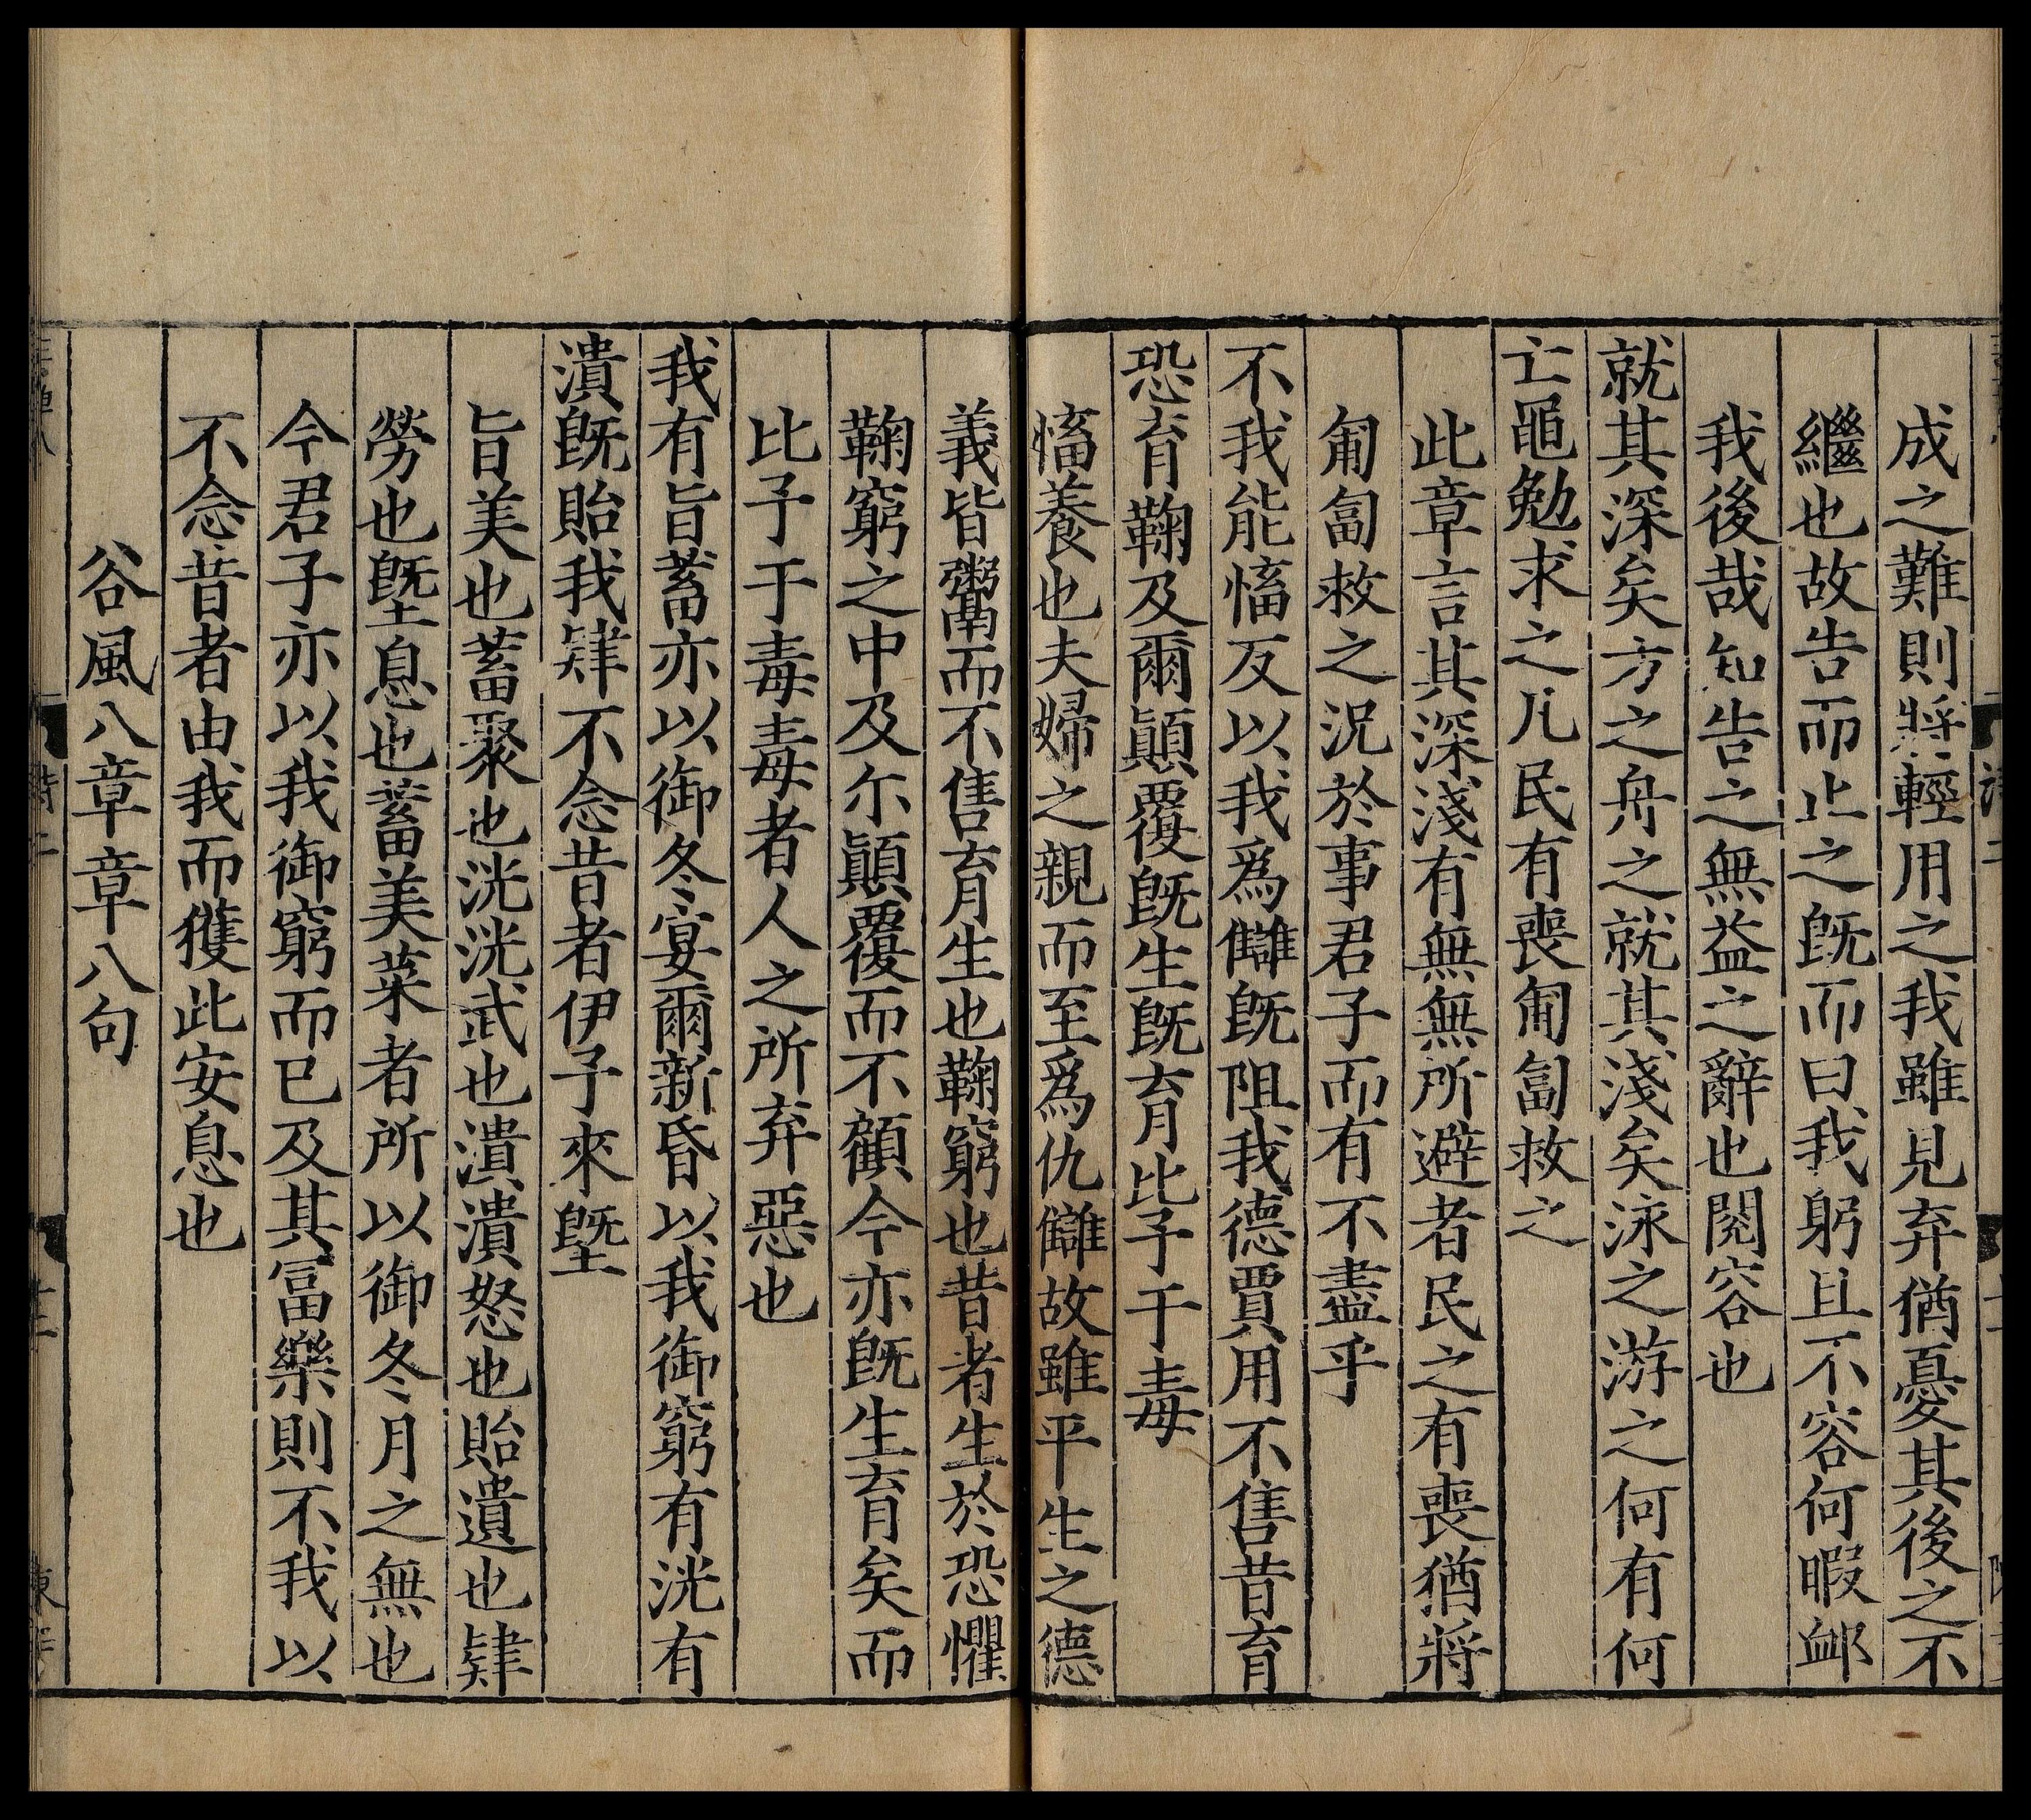 成之難則將輕用之我雖見弃猶憂其後之不
繼也故告而止之旣而曰我躬且不容何暇卹
我後哉知告之無益之辭也閱容也
就其深矣方之舟之就其淺矣泳之游之何有何
亡黽勉求之凡民有喪匍匐救之
此章言其深淺有無無所避者民之有喪猶將
匍匐救之況於事君子而有不盡乎
不我能慉反以我爲讎旣阻我德賈用不售昔育
恐育鞠及爾顚覆旣生旣育比予于毒
慉養也夫婦之親而至爲仇讎故雖平生之德
義皆鬻而不售育生也鞠窮也昔者生於恐懼
鞠窮之中及尓顚覆而不顧今亦旣生育矣而
比予于毒毒者人之所弃惡也
我有旨蓄亦以御冬宴爾新昏以我御窮有洸有
潰旣貽我肄不念昔者伊予來墍
旨美也蓄聚也洸洸武也潰潰怒也貽遺也肄
勞也墍息也蓄美菜者所以御冬月之無也
今君子亦以我御窮而已及其冨樂則不我以
不念昔者由我而獲此安息也
谷風八章章八句
詩二